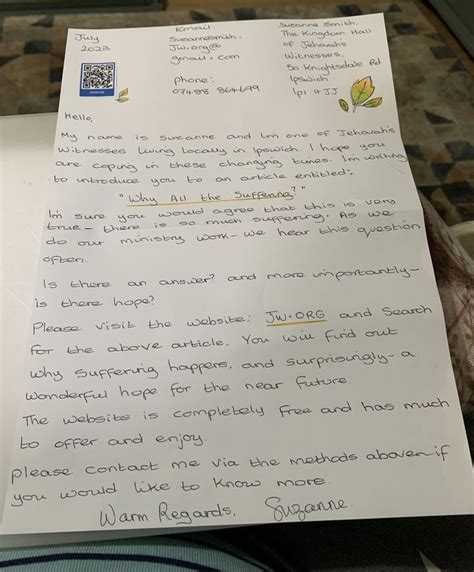 July
2023
Email:
Suzannesmith.
Jw.org@
gmail.com
Phone:
07488 864699
Suzanne Smith,
The Kingdom Hall
of Jehovahs
Witnesses,
50 Knightsdale Rd
Ipswich
IP1 4JJ
Hello,
My name is Suzanne and Im one of Jehovah's
Witnesses living locally in Ipswich. I hope you
are coping in these changing times. Im writing
to introduce you to an article entitled:
"Why All the Suffering?"
Im sure you would agree that this is very
true - there is so much suffering. As we
do our ministry work - we hear this question
often.
Is there an answer? and more importantly -
is there hope?
Please visit the website: JW.ORG and Search
for the above article. You will find out
why suffering happens, and surprisingly - a
wonderful hope for the near future.
The website is completely free and has much
to offer and enjoy.
please contact me via the methods above if
you would like to know more.
Warm Regards, Suzanne.